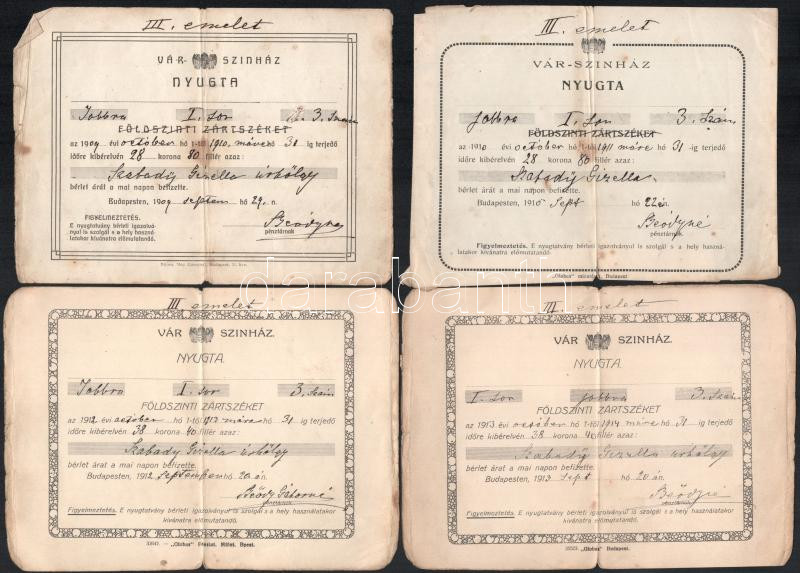 III. emelet
VÁR- SZINHÁZ
NYUGTA
Jobbra I. sor 3. Szám
FÖLDSZINTI ZÁRTSZÉKET
az 1909 évi október hó 1-től 1910. márc hó 31 ig terjedő
időre kibérelvén 28 korona 80 fillér azaz:
Szabady Gizella úrhölgy
bérlet árát a mai napon befizette.
Budapesten, 1909 septem hó 29. n.
FIGYELMEZTETÉS.
E nyugtatvány bérleti igazolvá-
nyul is szolgál s a hely haszná-
latakor kívánatra előmutatandó.
Beődyné
pénztárnok
III. emelet
VÁR-SZINHÁZ
NYUGTA
Jobbra I. sor 3. Szám
FÖLDSZINTI ZÁRTSZÉKET
az 1910 évi october hó 1-től 1911 márc hó 31 -ig terjedő
időre kibérelvén 28 korona 80 fillér azaz:
Szabady Gizella
bérlet árát a mai napon befizette.
Budapesten, 1910 Sept hó 22 én.
Beődyné
pénztárnok
Figyelmeztetés. E nyugtatvány bérleti igazolványul is szolgál s a hely haszná-
latakor kívánatra előmutatandó.
„Globus" Budapest
darabanth
III emelet
VÁR SZINHÁZ.
NYUGTA.
Jobbra I. sor 3. Szám
FÖLDSZINTI ZÁRTSZÉKET
az 1912 évi october hó 1-től 1913 márc hó 31 -ig terjedő
időre kibérelvén 38 korona 40 fillér azaz:
Szabady Gizella úrhölgy
bérlet árát a mai napon befizette.
Budapesten, 1912 September hó 20 án.
Beődy Gáborné
pénztárnok
Figyelmeztetés. E nyugtatvány bérleti igazolványul is szolgál s a hely használatakor
kívánatra előmutatandó.
„Globus" Budapest.
III. emelet
VÁR SZINHÁZ.
NYUGTA.
I. sor Jobbra 3. Szám
FÖLDSZINTI ZÁRTSZÉKET
az 1913 évi october hó 1-től 1914 márc hó 31 -ig terjedő
időre kibérelvén 38 korona 40 fillér azaz:
Szabady Gizella úrhölgy
bérlet árát a mai napon befizette.
Budapesten, 1913 Sept hó 20 án.
Beődyné
pénztárnok
Figyelmeztetés. E nyugtatvány bérleti igazolványul is szolgál s a hely használatakor
kívánatra előmutatandó.
„Globus" Budapest.